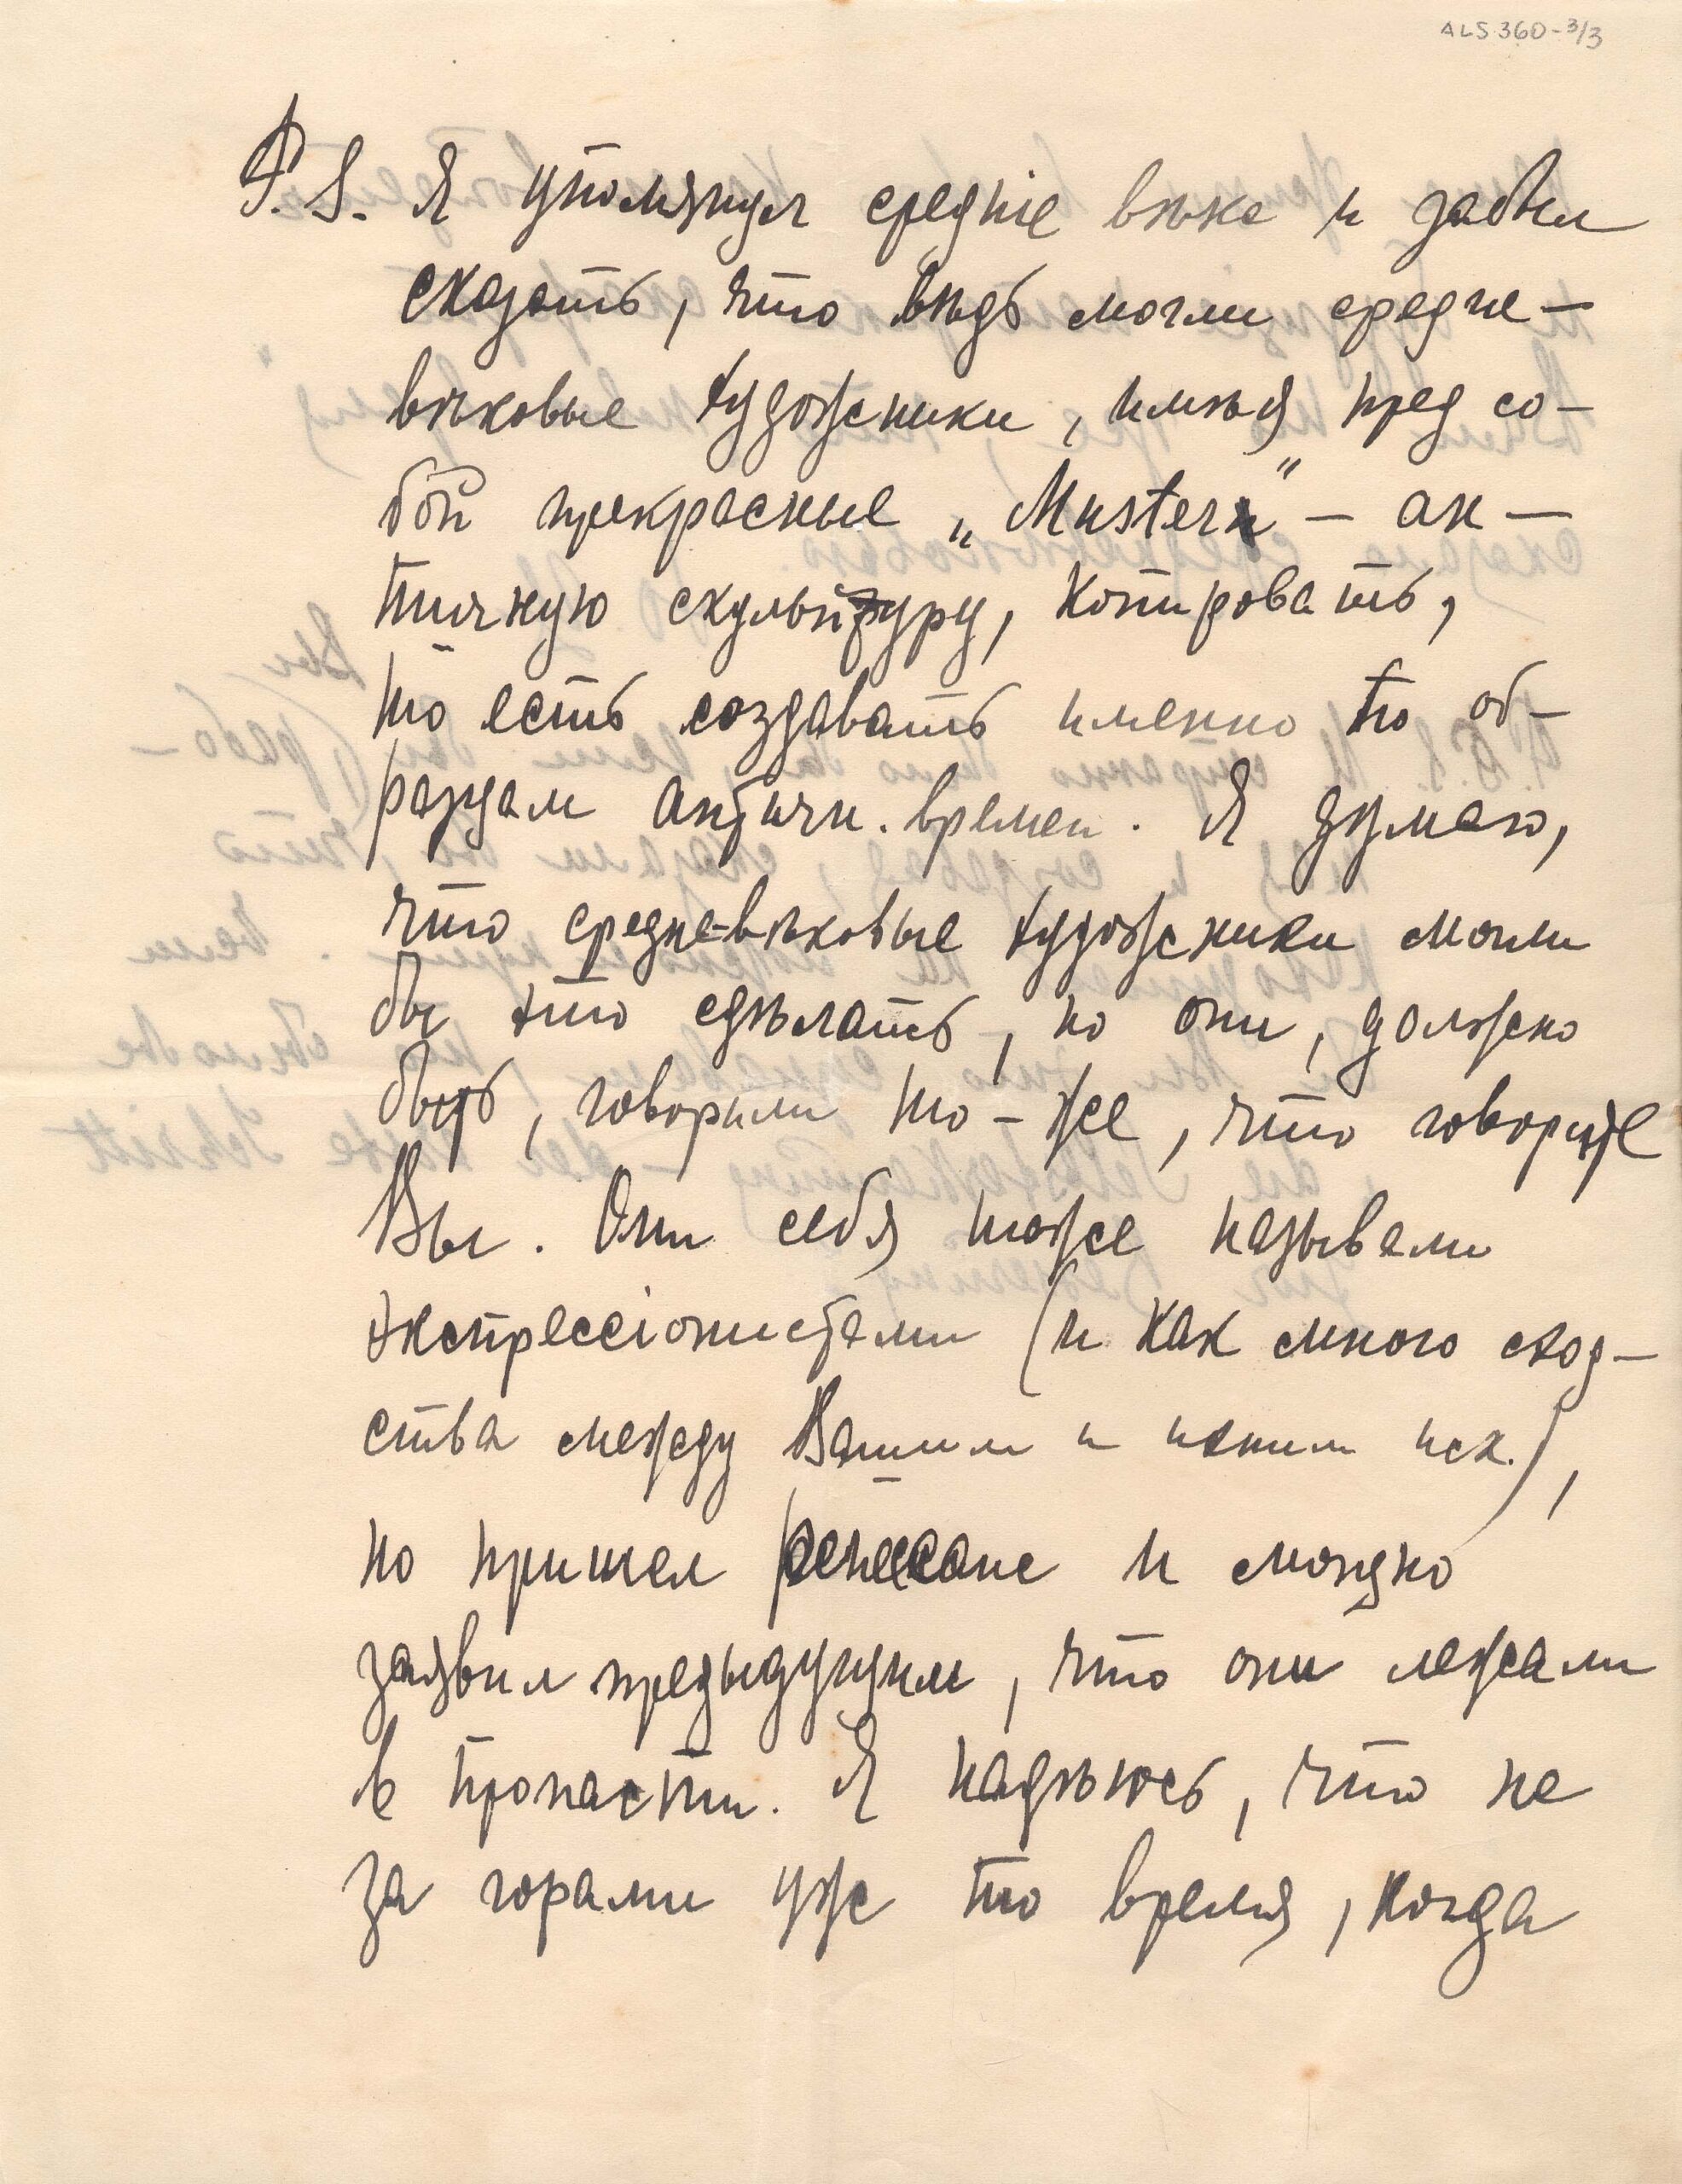 ALS 360-3/3
P.S. Я упомянул средніе вѣка и забыл
сказать, что вѣдь могли средне-
вѣковые художники, имѣя пред со-
бой прекрасные „Muster“ – ан-
тичную скульптуру, копировать,
то есть создавать именно по об-
разцам античн. времен. Я думаю,
что средне-вѣковые художники могли
бы это сдѣлать, но они, должно
быть, говорили то-же, что говорите
Вы. Они себя тоже называли
экспрессіонистами (и как много сход-
ства между Вашим и иск.),
но пришел ренессанс и
заявил предыдущим, что они лежали
в пропасти. Я надѣюсь, что не
за горами уже то время, когда